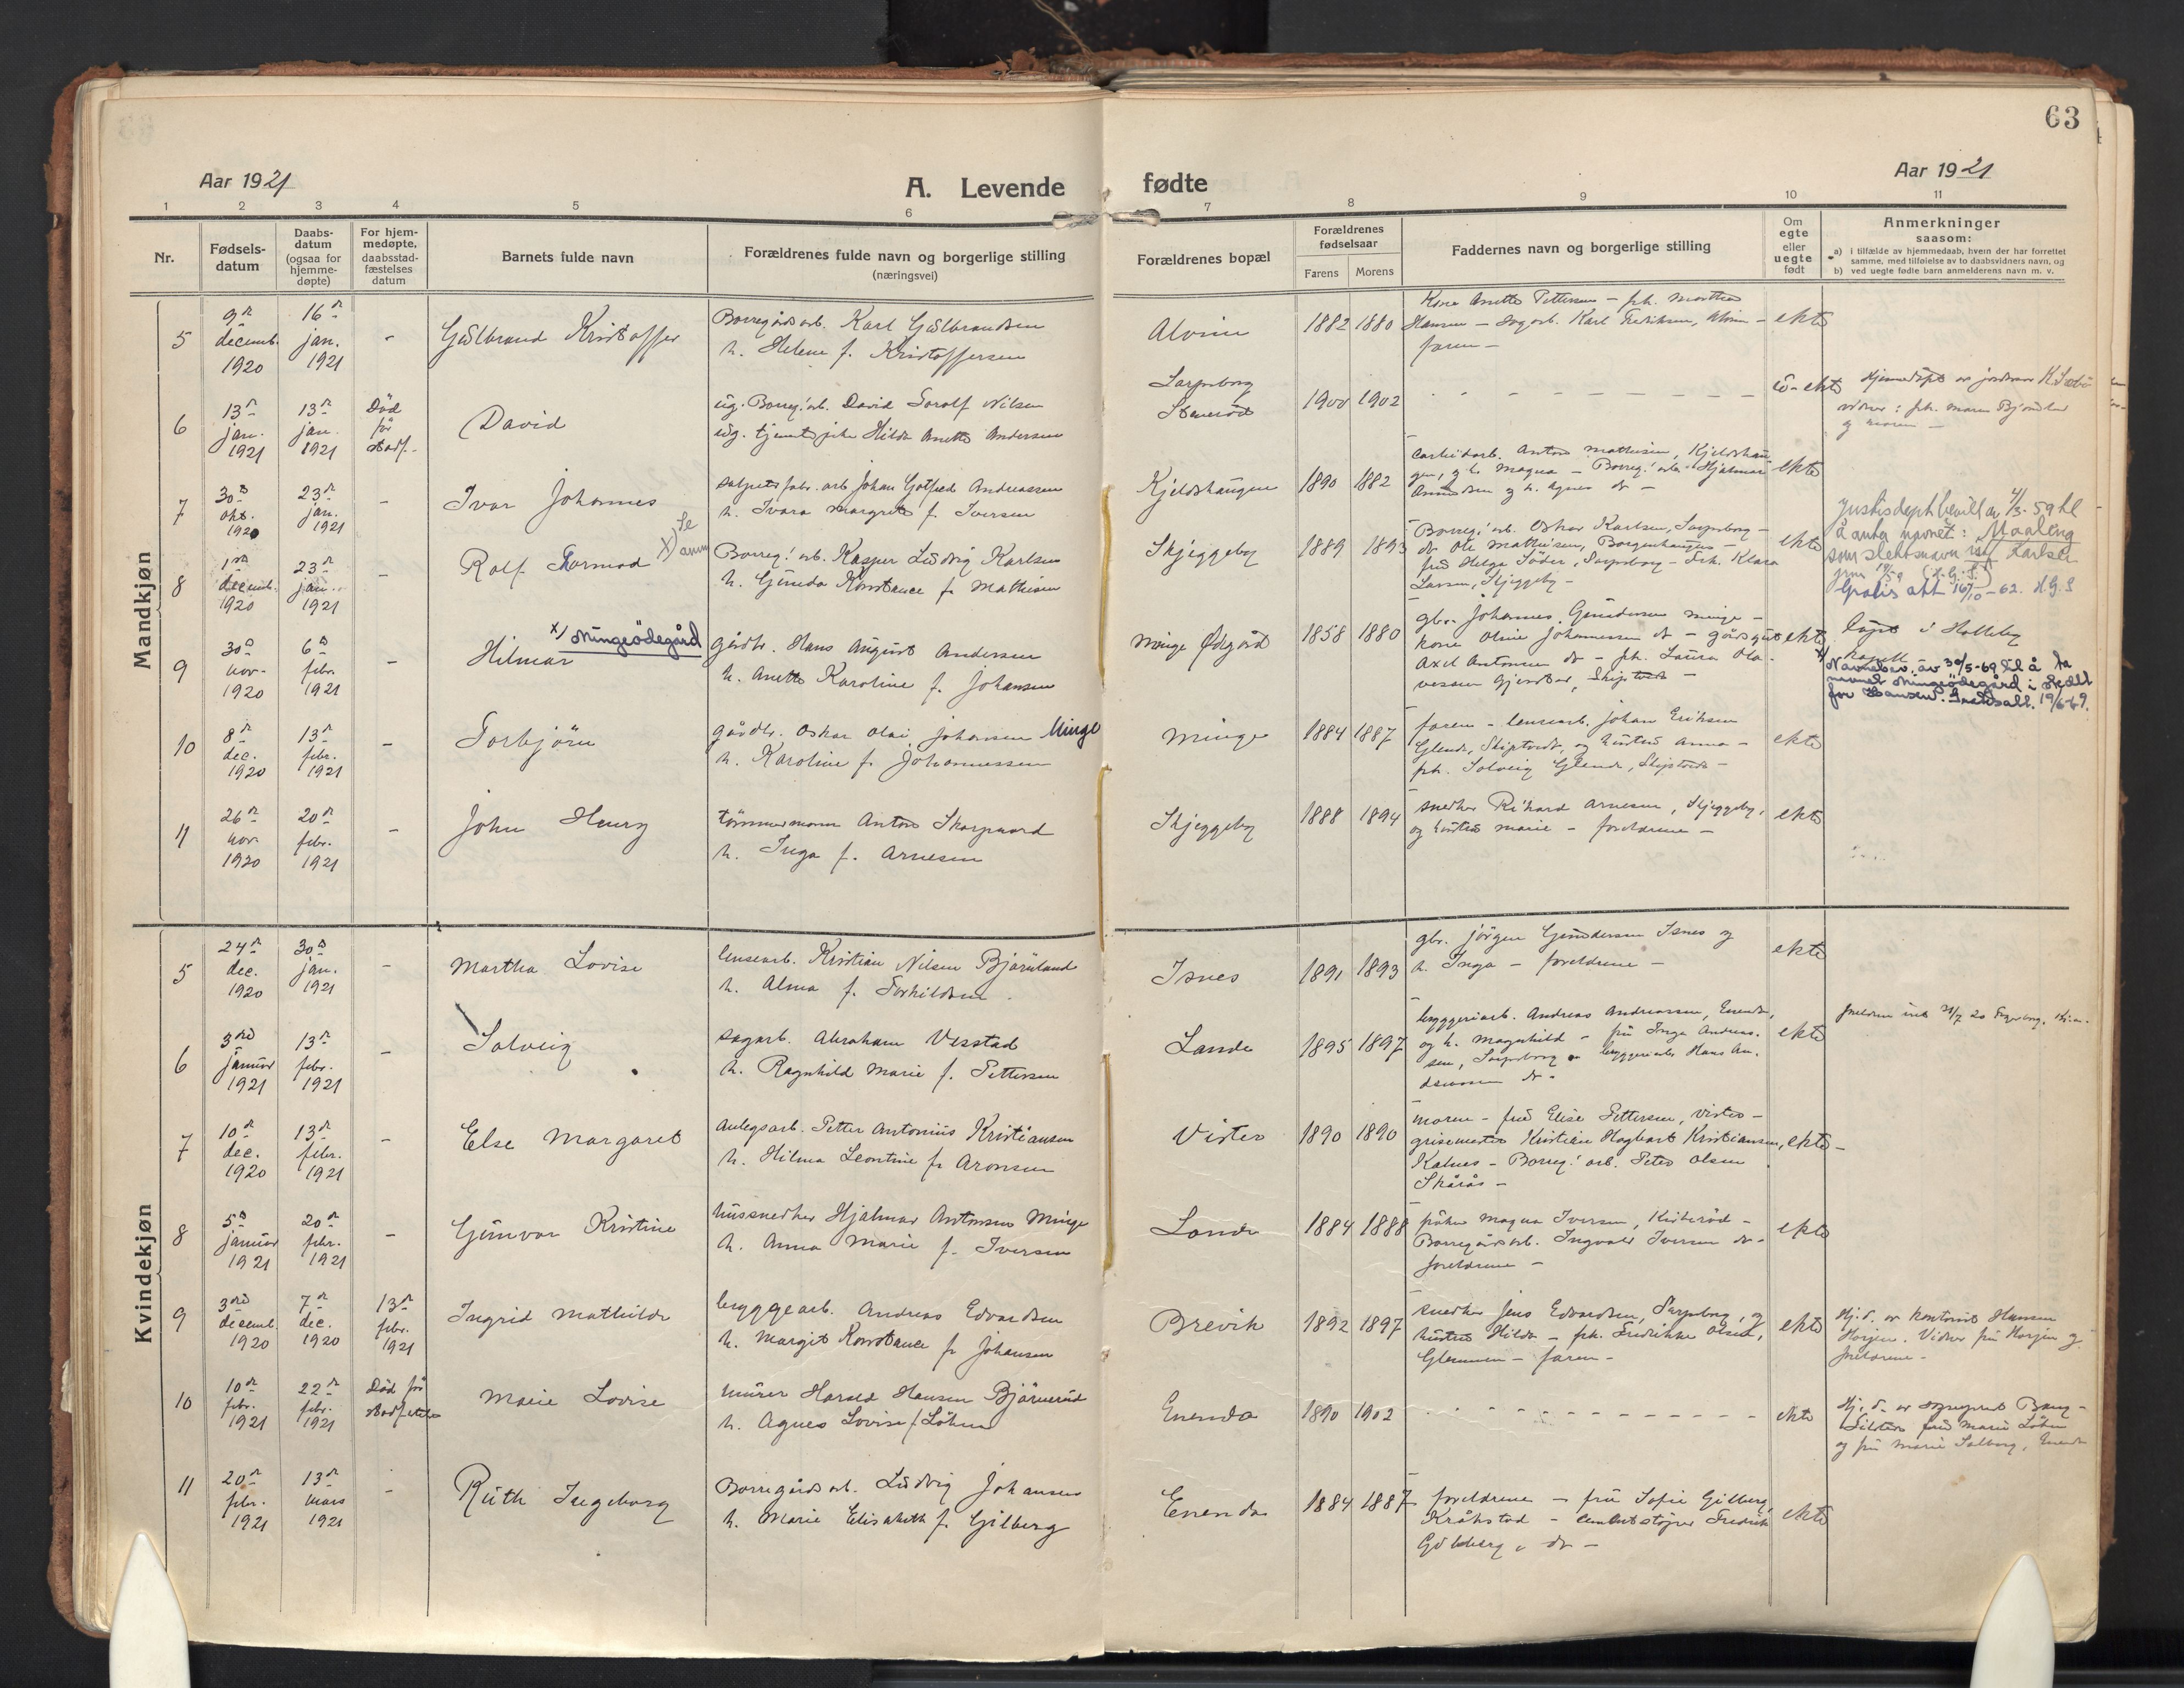 63
Aar 1921
A. Levende fødte
Aar 1921
1 2 3 4 5 6 7 8 9 10 11
Nr.
Fødsels-
datum
Daabs-
datum
(ogsaa for
hjemme-
døpte)
For hjem-
medøpte,
daabsstad-
fæstelses
datum
Barnets fulde navn
Forældrenes fulde navn og borgerlige stilling
(næringsvei)
Forældrenes bopæl
Forældrenes
fødselsaar
Farens Morens
Faddernes navn og borgerlige stilling
Om
egte
eller
uegte
født
Anmerkninger
saasom:
a) i tilfælde av hjemmedaab, hvem der har forrettet
samme, med tilføielse av to daabsvidners navn, og
b) ved uegte fødte barn anmelderens navn m. v.
Mandkjøn
5
9de
decemb.
1920
16de
jan.
1921
-
Gülbrand Kristoffer
Borregårdsarb. Karl Gülbrandsen
h. Helene f. Kristoffersen
Alvim
1882 1880
Kone Anette Pettersen - frk. Martha
Hansen - Karl Fredriksen, Alvim -
faren -
ekte
6
13de
jan.
1921
13de
jan.
1921
Død
før
stadf.
David
ug. Borreg. arb. David Torolf Nilsen
ug. Hilda Anette Andersen
Sarpsborg
1900 1902
u-ekte
Hjemmedöpt av jordmor
vidner: frk. Maren
og moren -
7
30te
okt.
1920
23de
jan.
1921
-
Ivar Johannes
arb. Johan Gotfred Andreassen
h. Ivara Margrete f. Iversen
Kjeldshaugen
1890 1882
Anton Mathisen,
og h. Magna - Borreg. arb. Hjalmar
og h. Agnes do -
ekte
8
1ste
decemb.
1920
23de
jan.
1921
-
Rolf Tormod
Borreg. arb. Kasper Ludvig Karlsen
h. Gunda Konstance f. Mathisen
Skjeggeby
1889 1893
Borreg. arb. Oskar Karlsen, Sarpsborg -
do Ole Mathisen, Borgenhaugen -
fru Helga Söder, Sarpsborg - Frk. Klara
Larsen, Skjeggeby -
ekte
Justisdept bevill av 4/3-59 til
å anta navnet: Maaleng
som slektsnavn ist f. Karlsen
Gratis att 16/10-62. H.G.S
9
30te
nov.
1920
6te
febr.
1921
-
Hilmar
x) Mingeødegård
gårdbr. Hans August Andersen
h. Anette Karoline f. Johansen
Minge Ødegård
1858 1880
gbr. Johannes Gundersen Minge -
kone Oline Johannessen do -
Axel Antonsen do - frk. Laura
ekte
Döpt i Holleby
kapell
x) Navnebev. av 30/5-69 til å ta
navnet Mingeødegård i stedet
for Hansen. 19/6-69.
10
8de
dec.
1920
13de
febr.
1921
-
Torbjörn
gårdbr. Oskar Olai Johansen Minge
h. Karoline f. Johannessen
Minge
1884 1887
faren - lensearb. Johan Eriksen
Glende, Skiptvedt, og hustru Anna -
frk. Solveig Glende, Skiptvedt -
ekte
11
26de
nov.
1920
20de
febr.
1921
-
John Henry
tömmermann Anton Skorgaard
h. Inga f. Arnesen
Skjeggeby
1888 1894
snedker Rikhard Arnesen, Skjeggeby,
og hustru Marie - foreldrene -
ekte
Kvindekjøn
5
24de
dec.
1920
30te
jan.
1921
-
Martha Lovise
lensearb. Kristian Nilsen Bjørnland
h. Alma f. Torkildsen
Isnes
1891 1893
gbr. Jörgen Gundersen Isnes og
h. Inga - foreldrene -
ekte
6
3die
januar
1921
13de
febr.
1921
-
Solveig
sagarb. Abraham Visstad
h. Ragnhild Marie f. Pettersen
Lande
1895 1897
bryggeriarb. Andreas Andreassen, Enenda,
og h. Magnhild - fru Inga
Sarpsborg - bryggeriarb. Hans
ekte
7
10de
dec.
1920
13de
febr.
1921
-
Else Margaret
anlegsarb. Petter Antonius Kristiansen
h. Hilma Leontine f. Aronsen
Visten
1890 1890
moren - fru Elise Pettersen, Visten -
grisemester Kristian Hagbart Kristiansen,
Kalnes - Borreg. arb. Peter Olsen
Skårås -
ekte -
8
5te
januar
1921
20de
febr.
1921
-
Gunvor Kristine
hussnedker Hjalmar Antonsen Minge
h. Anna Marie f. Iversen
Lande
1884 1888
Magna Iversen,
Borregårdsarb. Ingvald Iversen do -
foreldrene -
ekte
9
3die
decemb.
1920
7de
dec.
1920
13de
febr.
1921
Ingrid Mathilde
bryggearb. Andreas Edvardsen
h. Margit Konstance f. Johansen
Brevik
1892 1897
snedker Jens Edvardsen, Sarpsborg, og
hustru Hilda - frk. Fredrikke Olsen,
Glemmen - faren -
ekte
Hj. d. av Hansen
Vidner fru og
foreldrene -
10
10de
febr.
1921
22de
febr.
1921
Död før
stadfestelse
Marie Lovise
murer Harald Hansen Bjørnerud
h. Agnes Lovise f. Löken
Enenda
1890 1902
ekte
Hj. d. av
fru Marie Löken
og fru Marie Solberg, Enenda
11
20de
febr.
1921
13de
mars
1921
-
Ruth Ingeborg
Borregårdsarb. Ludvig Johansen
h. Marie Elisabeth f. Gilberg
Enenda
1884 1887
foreldrene - fru Sofie Gilberg,
Kråkstad - Fredrik
Gilberg, do -
ekte